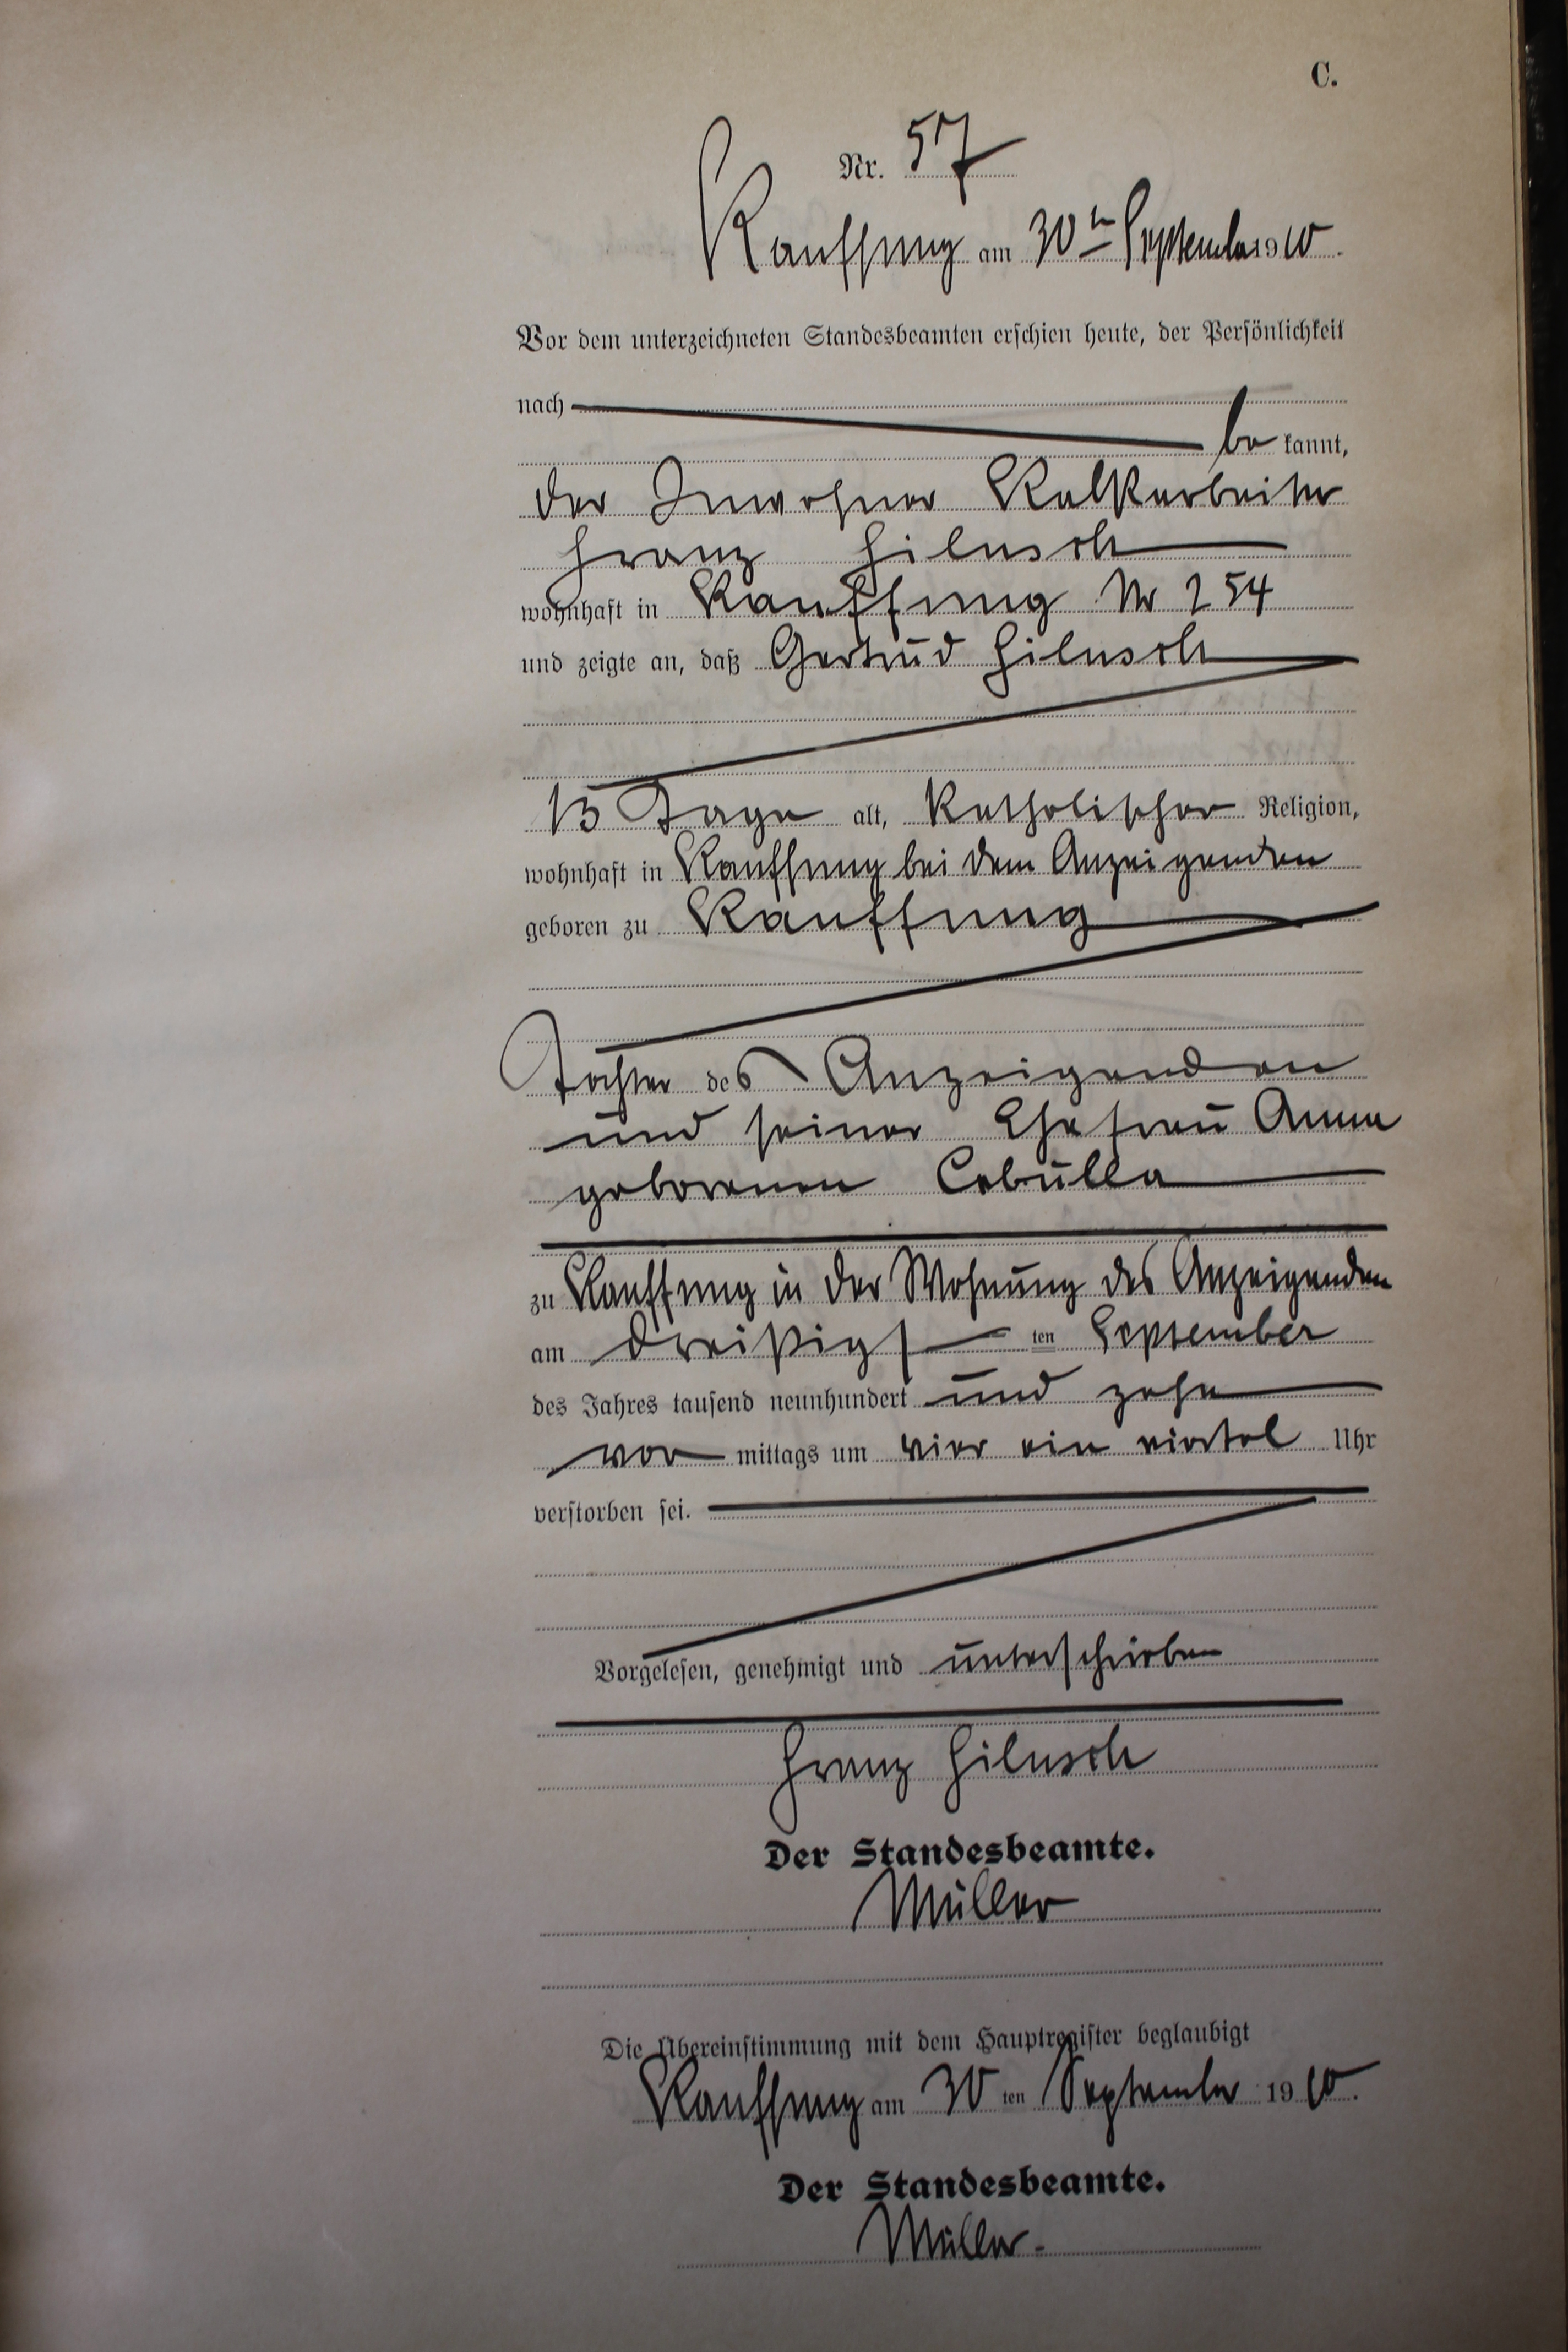 C.
Nr. 57
Kauffung am 30ten September 1910.
Vor dem unterzeichneten Standesbeamten erschien heute, der Persönlichkeit
nach
be kannt,
der Inwohner Kalkarbeiter
Franz Hilasch
wohnhaft in Kauffung Nr 254
und zeigte an, daß Gertrud Hilasch
13 Tage alt, katholischer Religion,
wohnhaft in Kauffung bei dem Anzeigenden
geboren zu Kauffung
Tochter des Anzeigenden
und seiner Ehefrau Anna
geborenen Cebulla
zu Kauffung in der Wohnung des Anzeigenden
am dreißigs ten September
des Jahres tausend neunhundert und zehn
vor mittags um vier ein viertel Uhr
verstorben sei.
Vorgelesen, genehmigt und unterschrieben
Franz Hilasch
Der Standesbeamte.
Müller
Die Übereinstimmung mit dem Hauptregister beglaubigt
Kauffung am 30 ten September 1910.
Der Standesbeamte.
Müller.